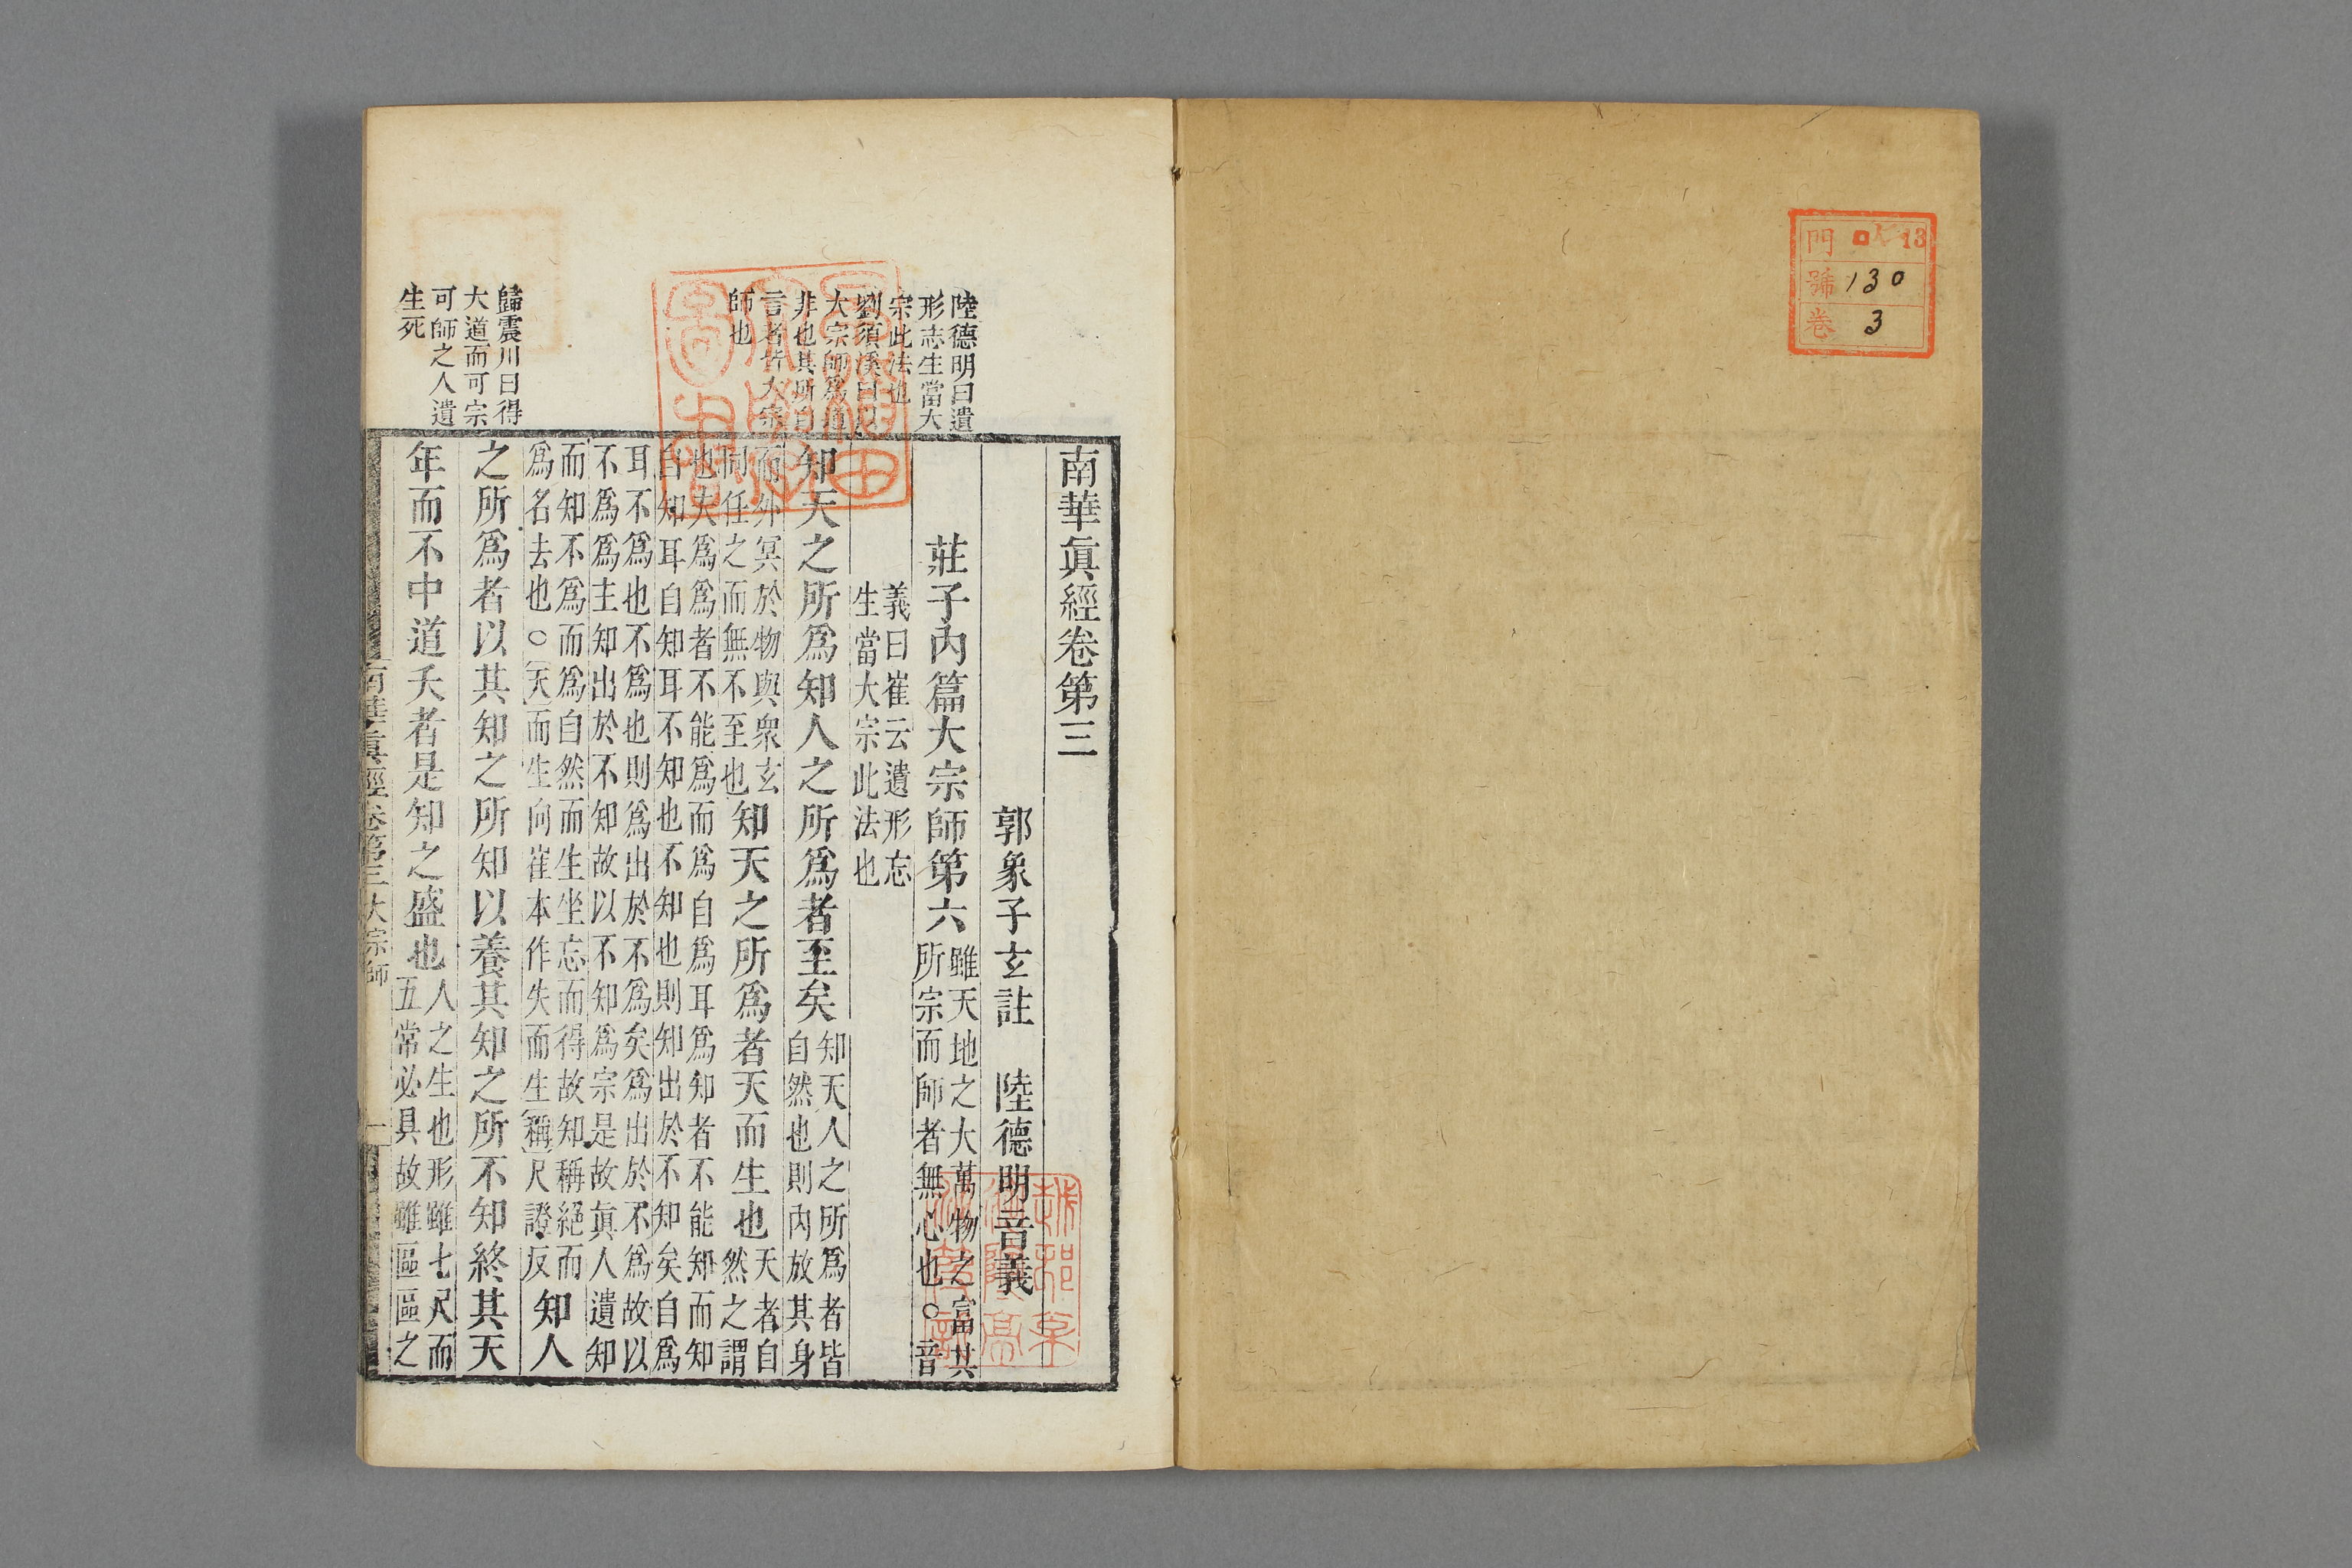 門 13
號 130
卷 3
陸德明曰遺
形志生當大
宗此法也
劉須溪曰
大宗師爲道
非也其所自
言者皆大宗
師也
歸震川曰得
大道而可宗
可師之人遺
生死
南華眞經卷第三
郭象子玄註 陸德明音義
莊子內篇大宗師第六
雖天地之大萬物之富其
所宗而師者無心也○音
義曰崔云遺形忘
生當大宗此法也
知天之所爲知人之所爲者至矣
知天人之所爲者皆
自然也則內放其身
而外冥於物與衆玄
同任之而無不至也
知天之所爲者天而生也
天者自
然之謂
也夫爲爲者不能爲而爲自爲耳爲知者不能知而知
自知耳自知耳不知也不知也則知出於不知矣自爲
耳不爲也不爲也則爲出於不爲矣爲出於不爲故以
不爲主知出於不知故以不知爲宗是故眞人遺知
而知不爲而爲自然而生坐忘而得故知稱絕而
爲名去也○天而生向崔本作失而生稱尺證反
知人
之所爲者以其知之所知以養其知之所不知終其天
年而不中道夭者是知之盛也
人之生也形雖七尺而
五常必具故雖區區之
南華眞經卷第三大宗師 一